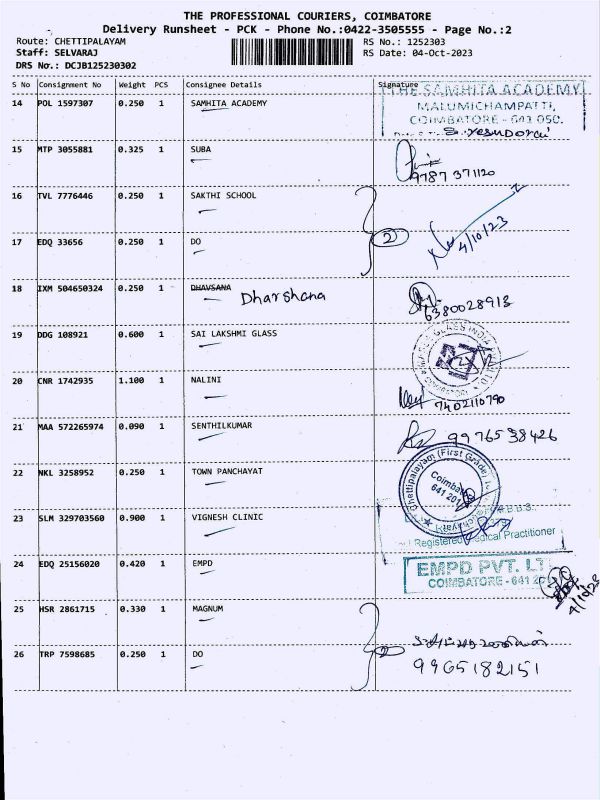 THE PROFESSIONAL COURIERS, COIMBATORE
Delivery Runsheet - PCK - Phone No.:0422-3505555 - Page No.:2
Route: CHETTIPALAYAM
RS No.: 1252303
Staff: SELVARAJ
RS Date: 04-Oct-2023
DRS No.: DCJB125230302
S No Consignment No Weight PCS Consignee Details Signature
THE SAMHITA ACADEMY
14 POL 1597307 0.250 1 SAMHITA ACADEMY
MALUMICHAMPATTI,
COIMBATORE - 641 050.
15 MTP 3055881 0.325 1 SUBA
9787 371120
16 TVL 7776446 0.250 1 SAKTHI SCHOOL
17 EDQ 33656 0.250 1 DO
2
4/10/23
18 IXM 504650324 0.250 1 DHAVSANA Dharshana
6380028913
19 DDG 108921 0.600 1 SAI LAKSHMI GLASS
GLASS INDIA
20 CNR 1742935 1.100 1 NALINI
7402110790
21 MAA 572265974 0.090 1 SENTHILKUMAR
9976538426
22 NKL 3258952 0.250 1 TOWN PANCHAYAT
Chettipalayam (First Grade)
Coimbatore
641 201
23 SLM 329703560 0.900 1 VIGNESH CLINIC
Registered Medical Practitioner
24 EDQ 25156020 0.420 1 EMPD
EMPD PVT. LTD
COIMBATORE - 641 201
4/10/23
25 HSR 2861715 0.330 1 MAGNUM
26 TRP 7598685 0.250 1 DO
2
9965182151